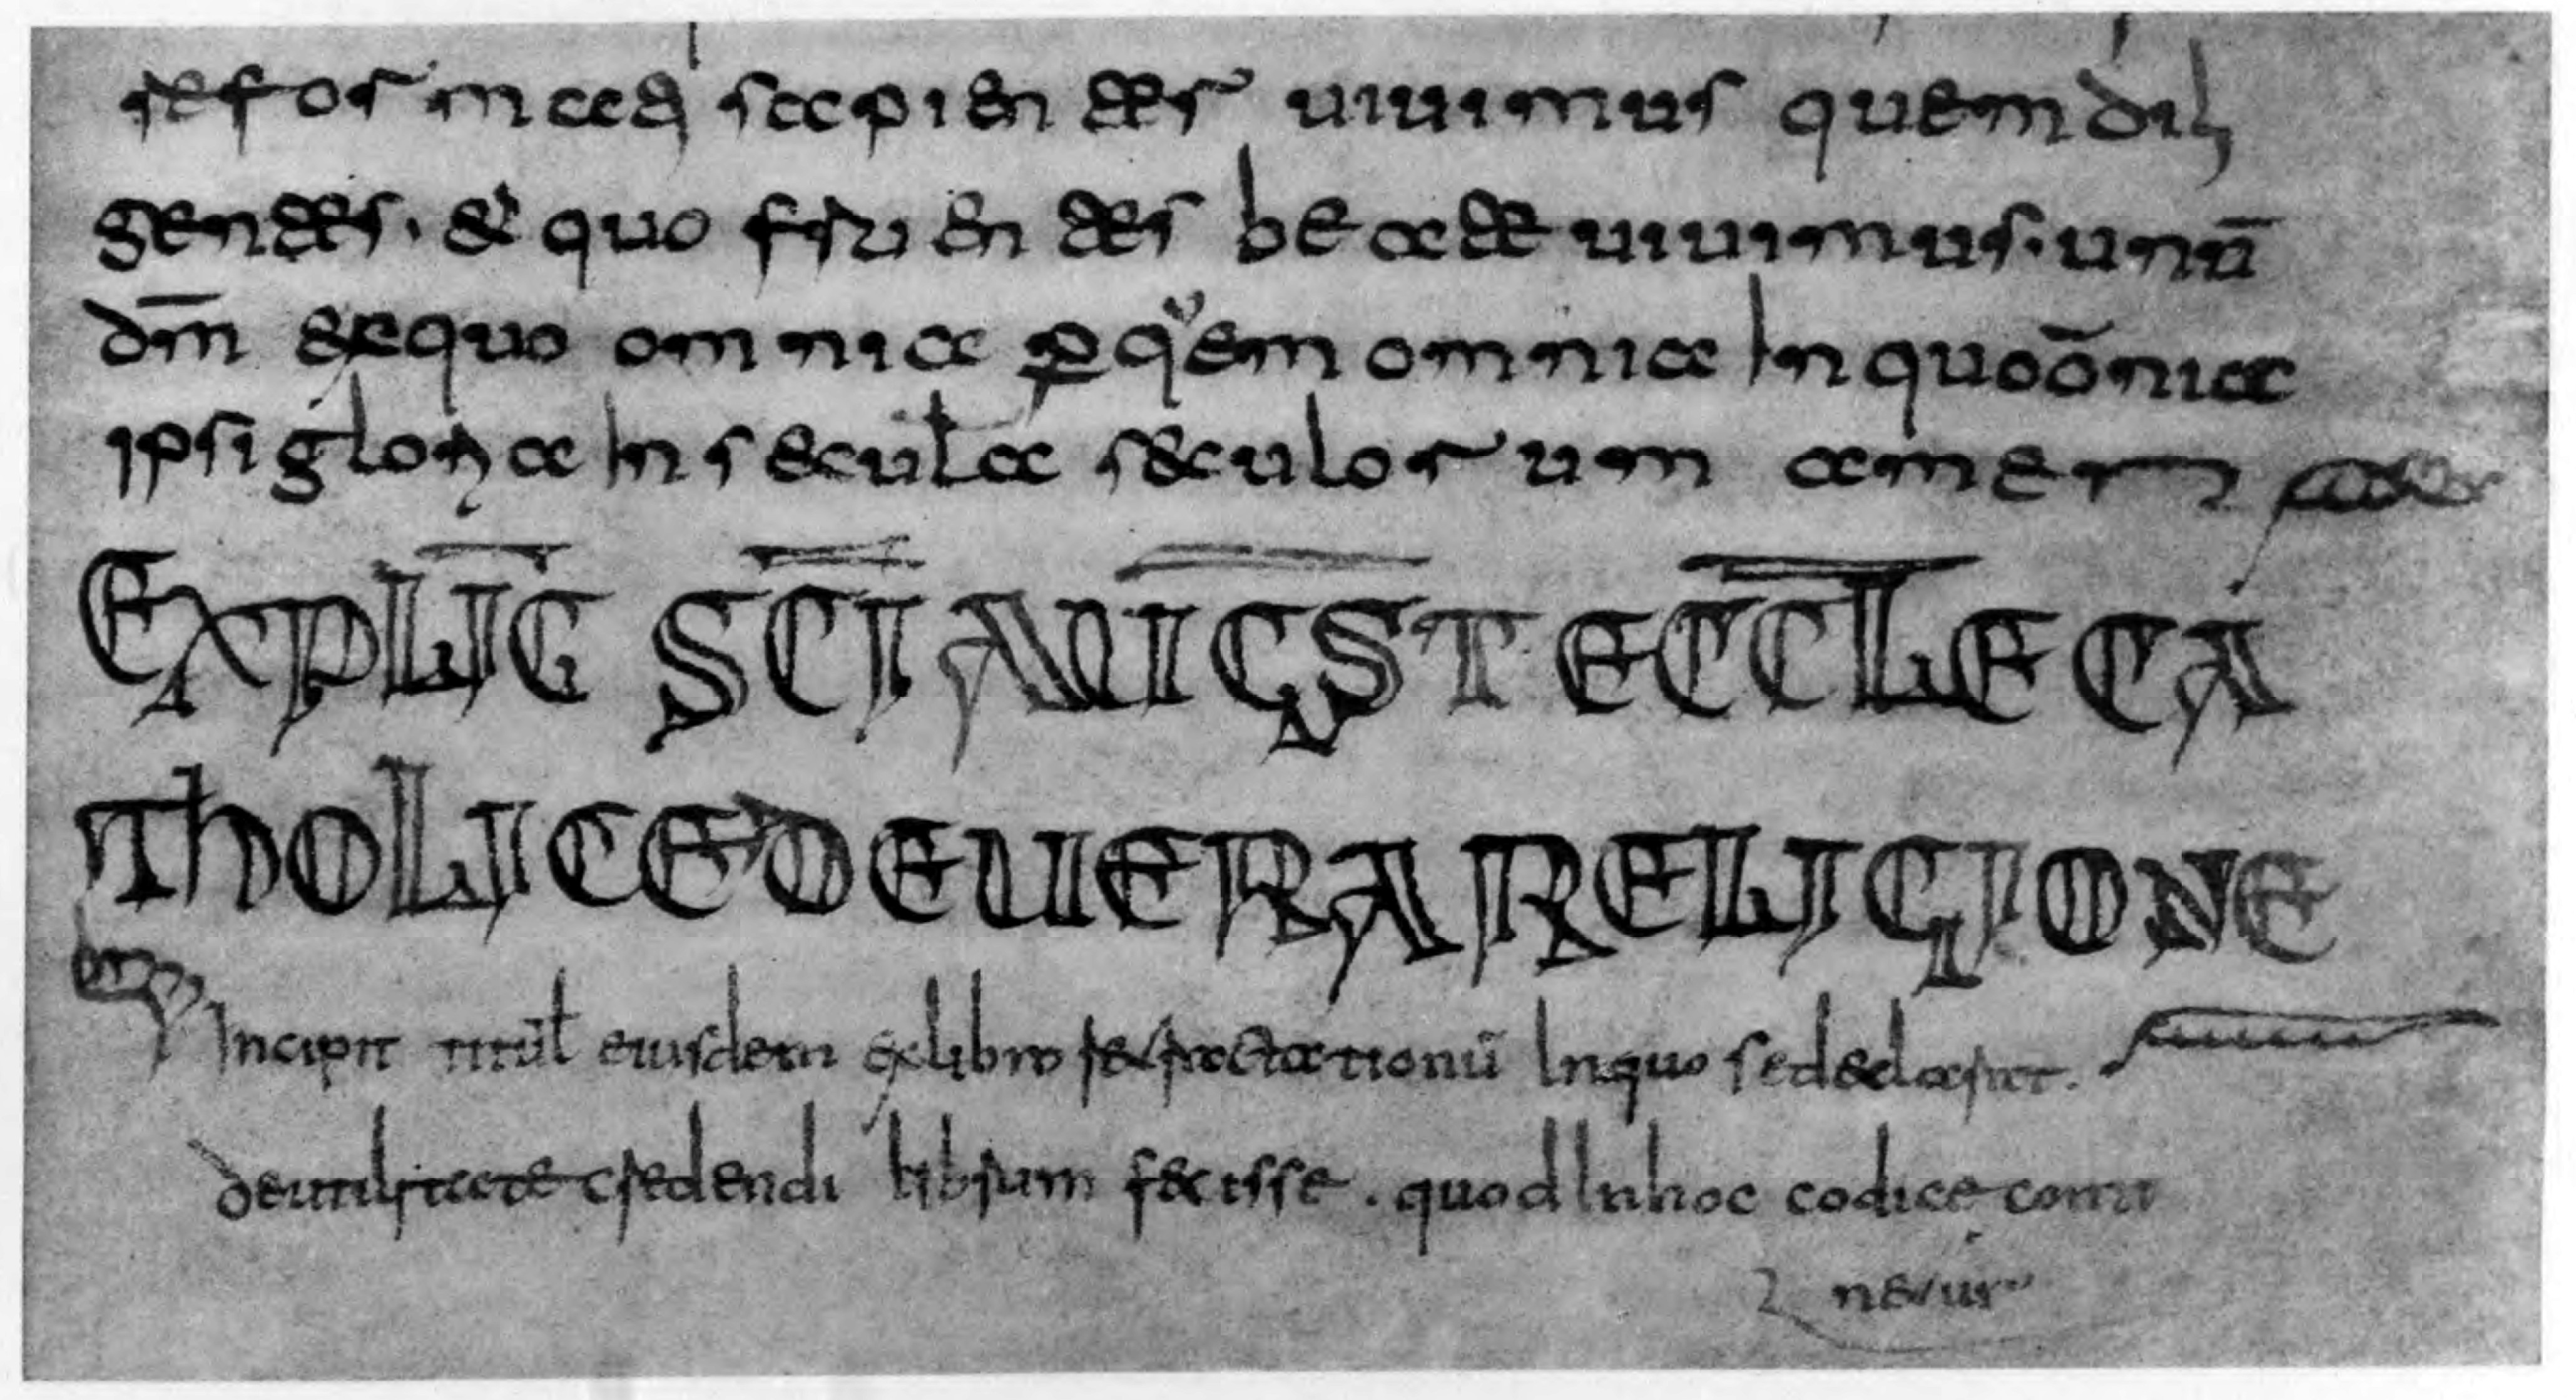 reformati sapienter uiuimus quem dili
gentes · et quo fruentes beate uiuimus · unū
dm̄ ex quo omnia ꝑ quem omnia In quo ōnia
ipsi gloria In secula seculorum amen
EXPLIC̄ SC̄I AUGS̄T ECCL̄E CA
ThOLICE DE UERA RELIGIONE
Incipit titul̄ eiusdem ex libro retractationū In quo se declarat .
de utilitate credendi librum fecisse . quod In hoc codice conti
netur